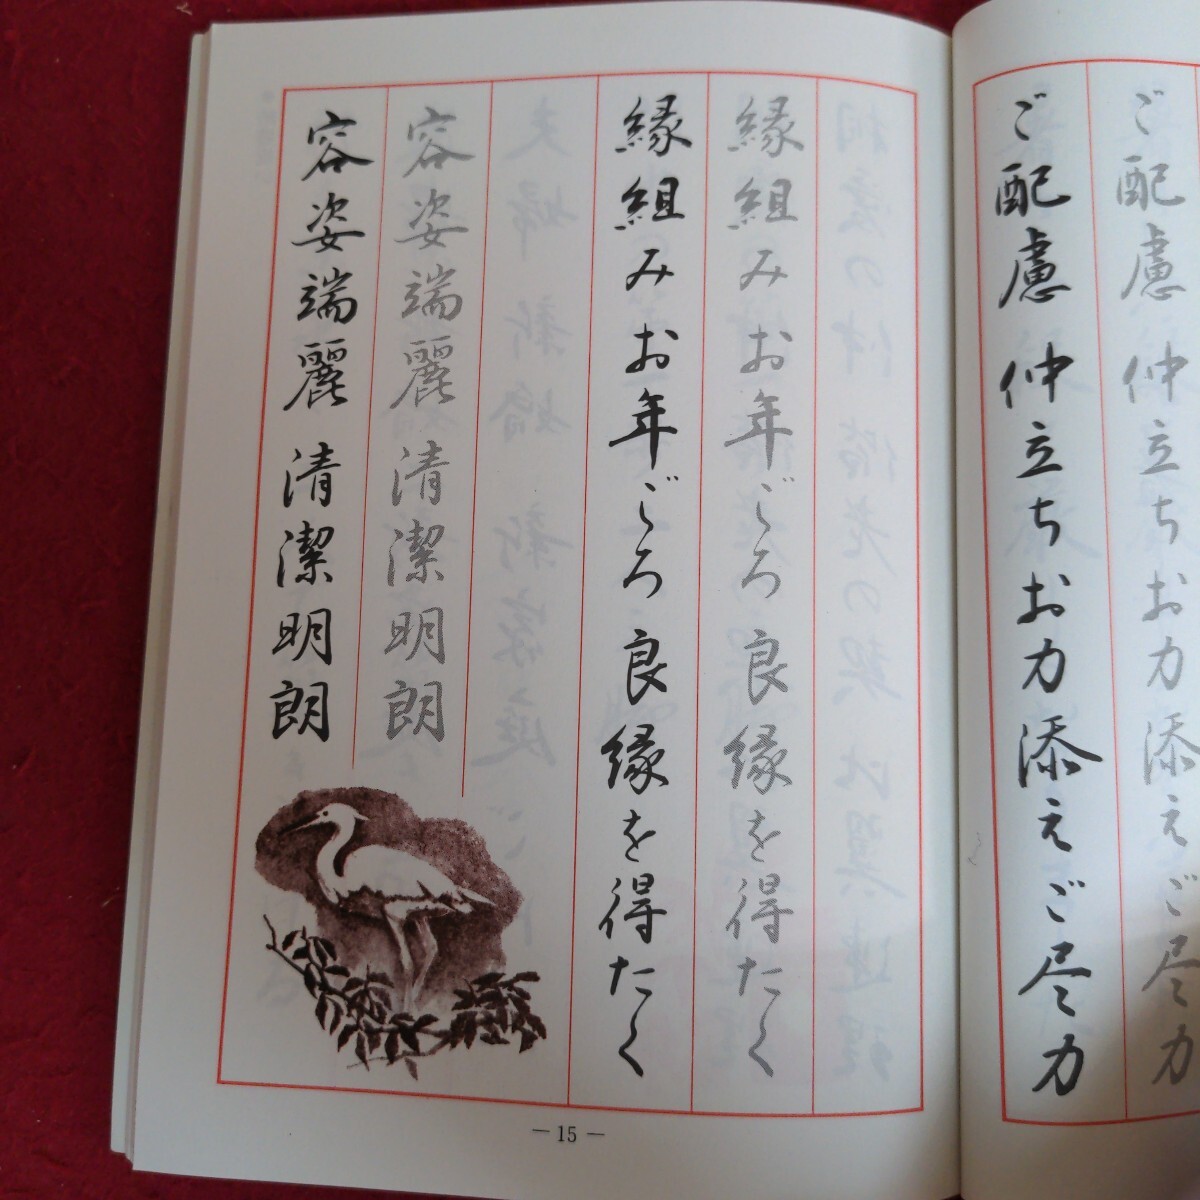 ご配慮 仲立ちお力添えご尽力
ご配慮 仲立ちお力添えご尽力
縁組みお年ごろ 良縁を得たく
縁組みお年ごろ 良縁を得たく
容姿端麗 清潔明朗
容姿端麗 清潔明朗
— 15 —